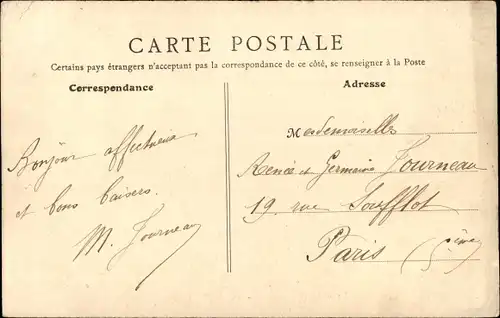 CARTE POSTALE
Certains pays étrangers n'acceptant pas la correspondance de ce côté, se renseigner à la Poste
Correspondance
Adresse
Bonjour affectueux
et bons baisers.
M. Tourneau
Mesdemoiselles
Renée et Germaine Tourneau
19 rue Soufflot
Paris (5ème)